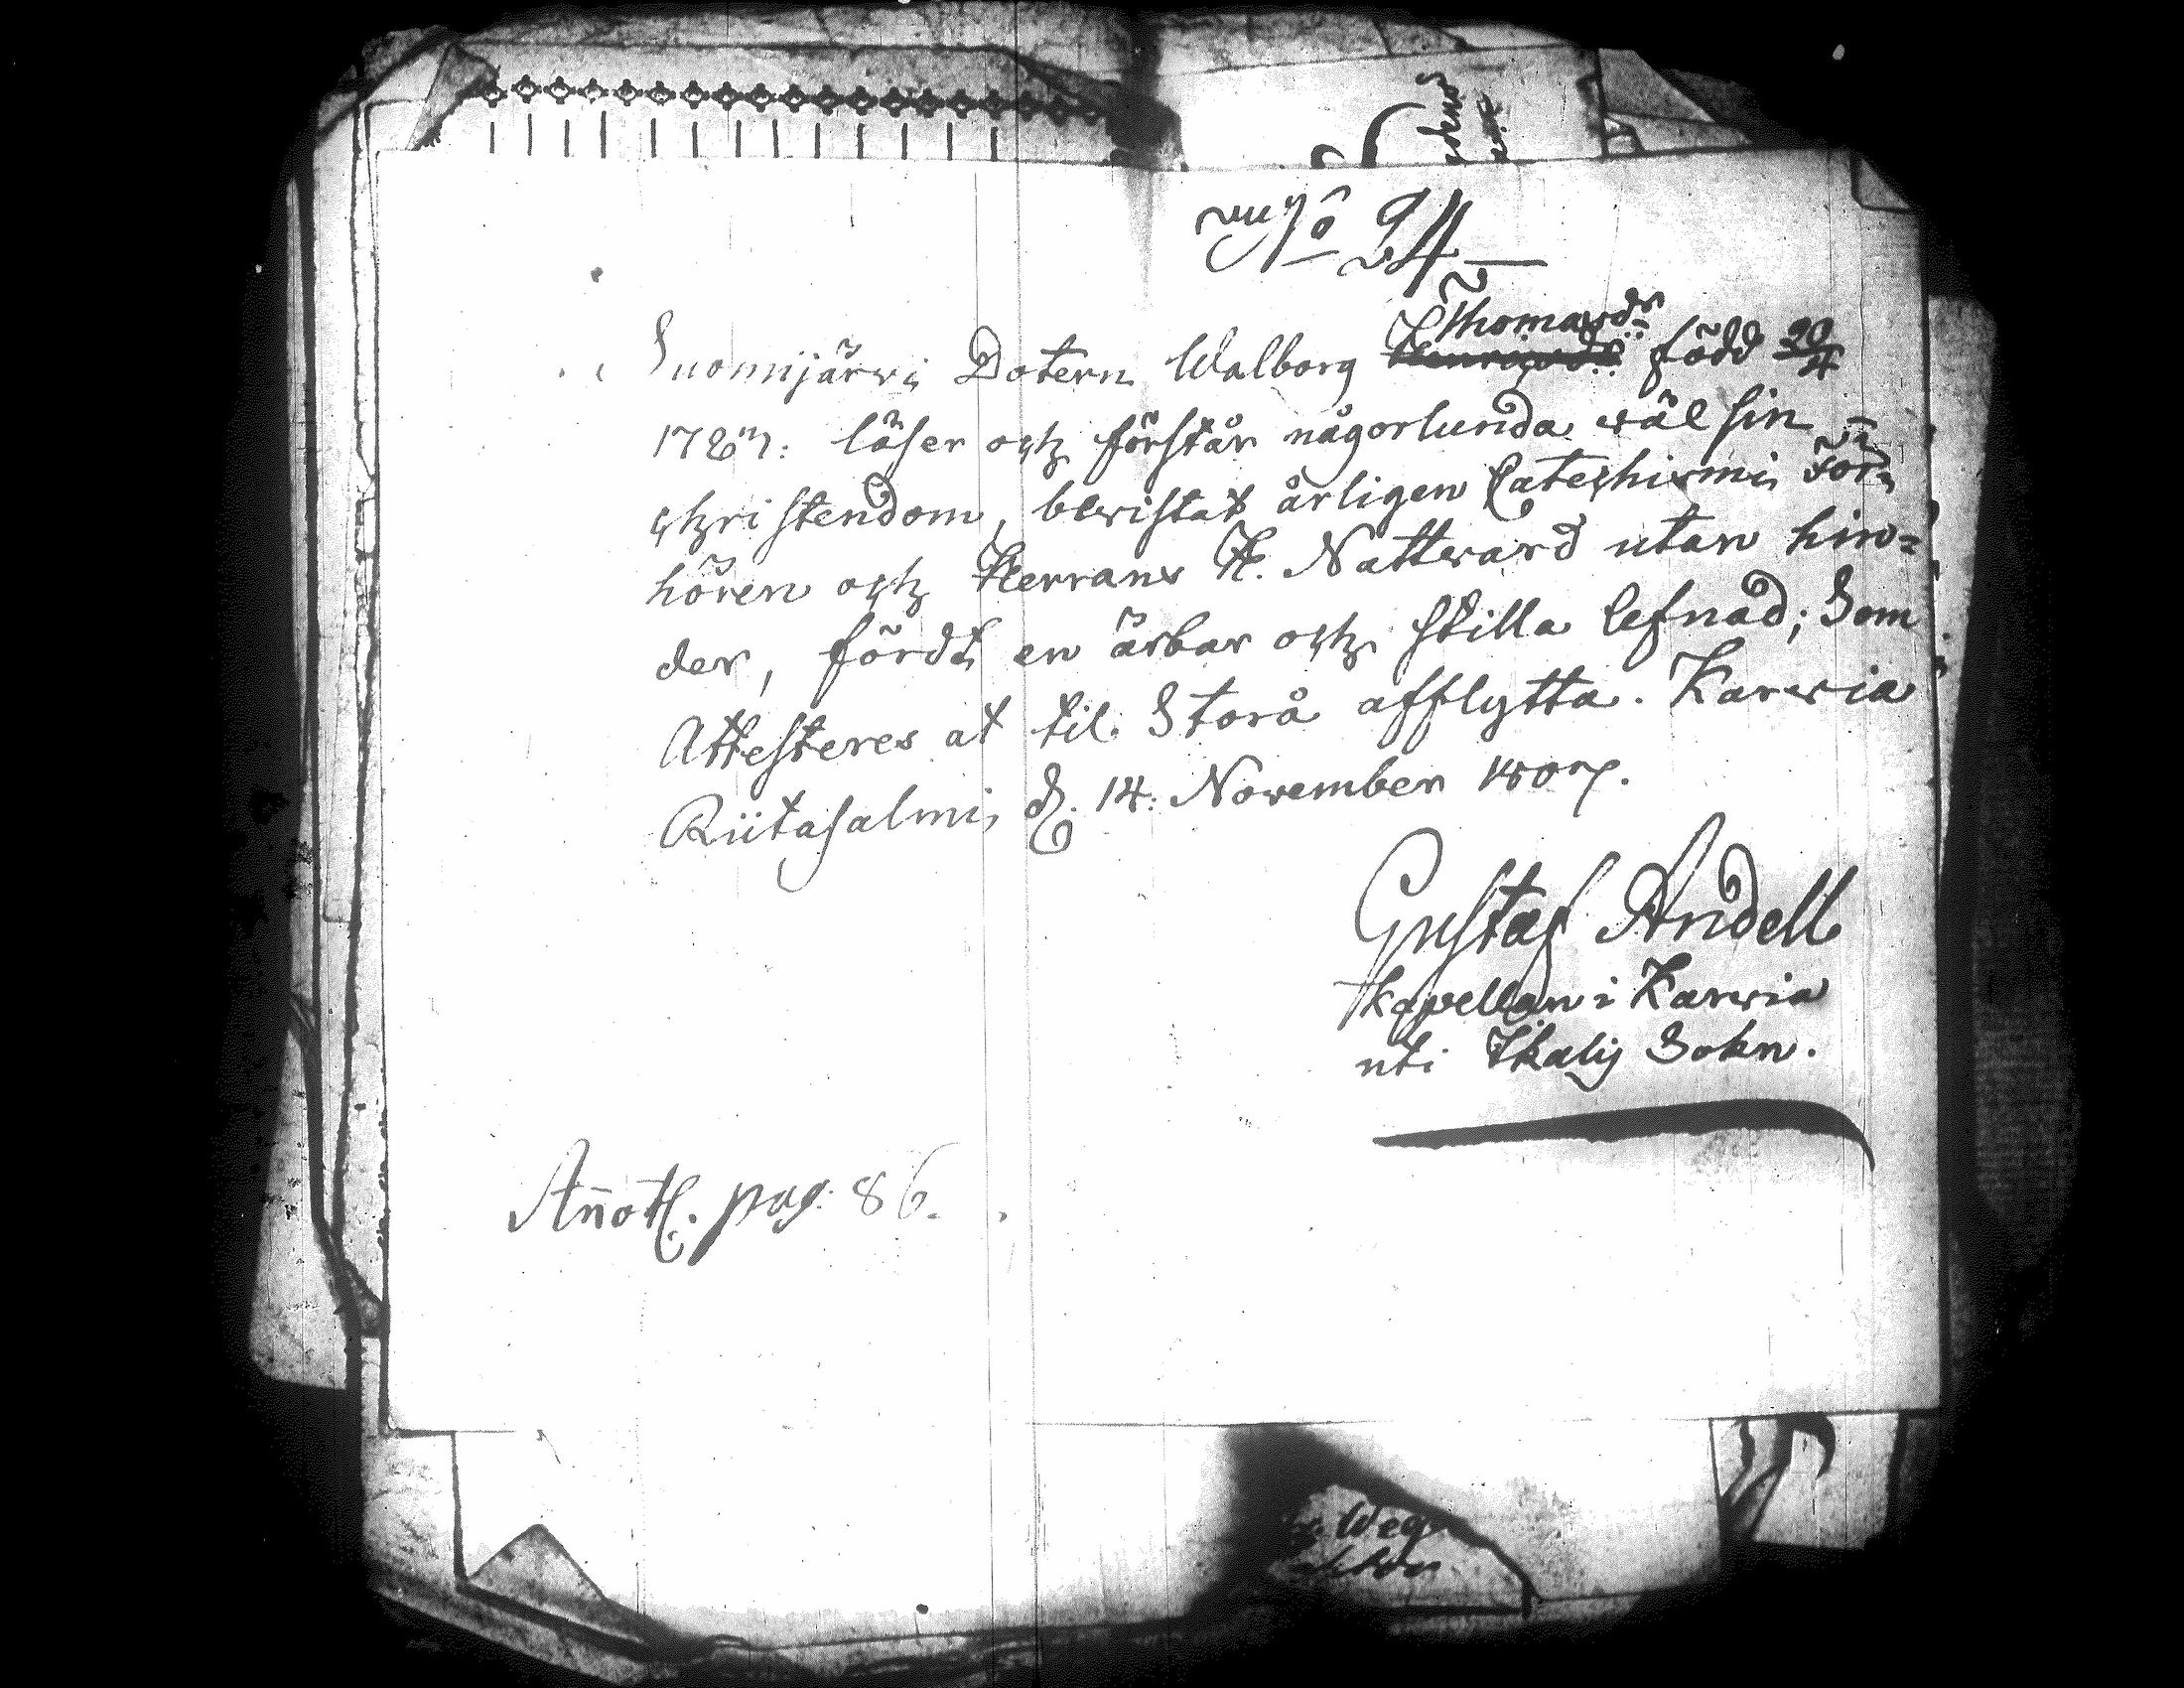 No 94
Suomijärvi Dotern Walborg Thomasdr född 20/4
1787: läser och förstår någorlunda väl sin
christendom, bevistat årligen Catechismi För=
hören och Herrans H. Nattvard utan hin=
der, fördt en ärbar och stilla lefnad; Som
Attesteres at til Storå afflytta. Karvia
Riitasalmi, d. 14. November 1807.
Gustaf Andell
kapellan i Karvia
uti Ikalis Sokn.
Añot. pag: 86.